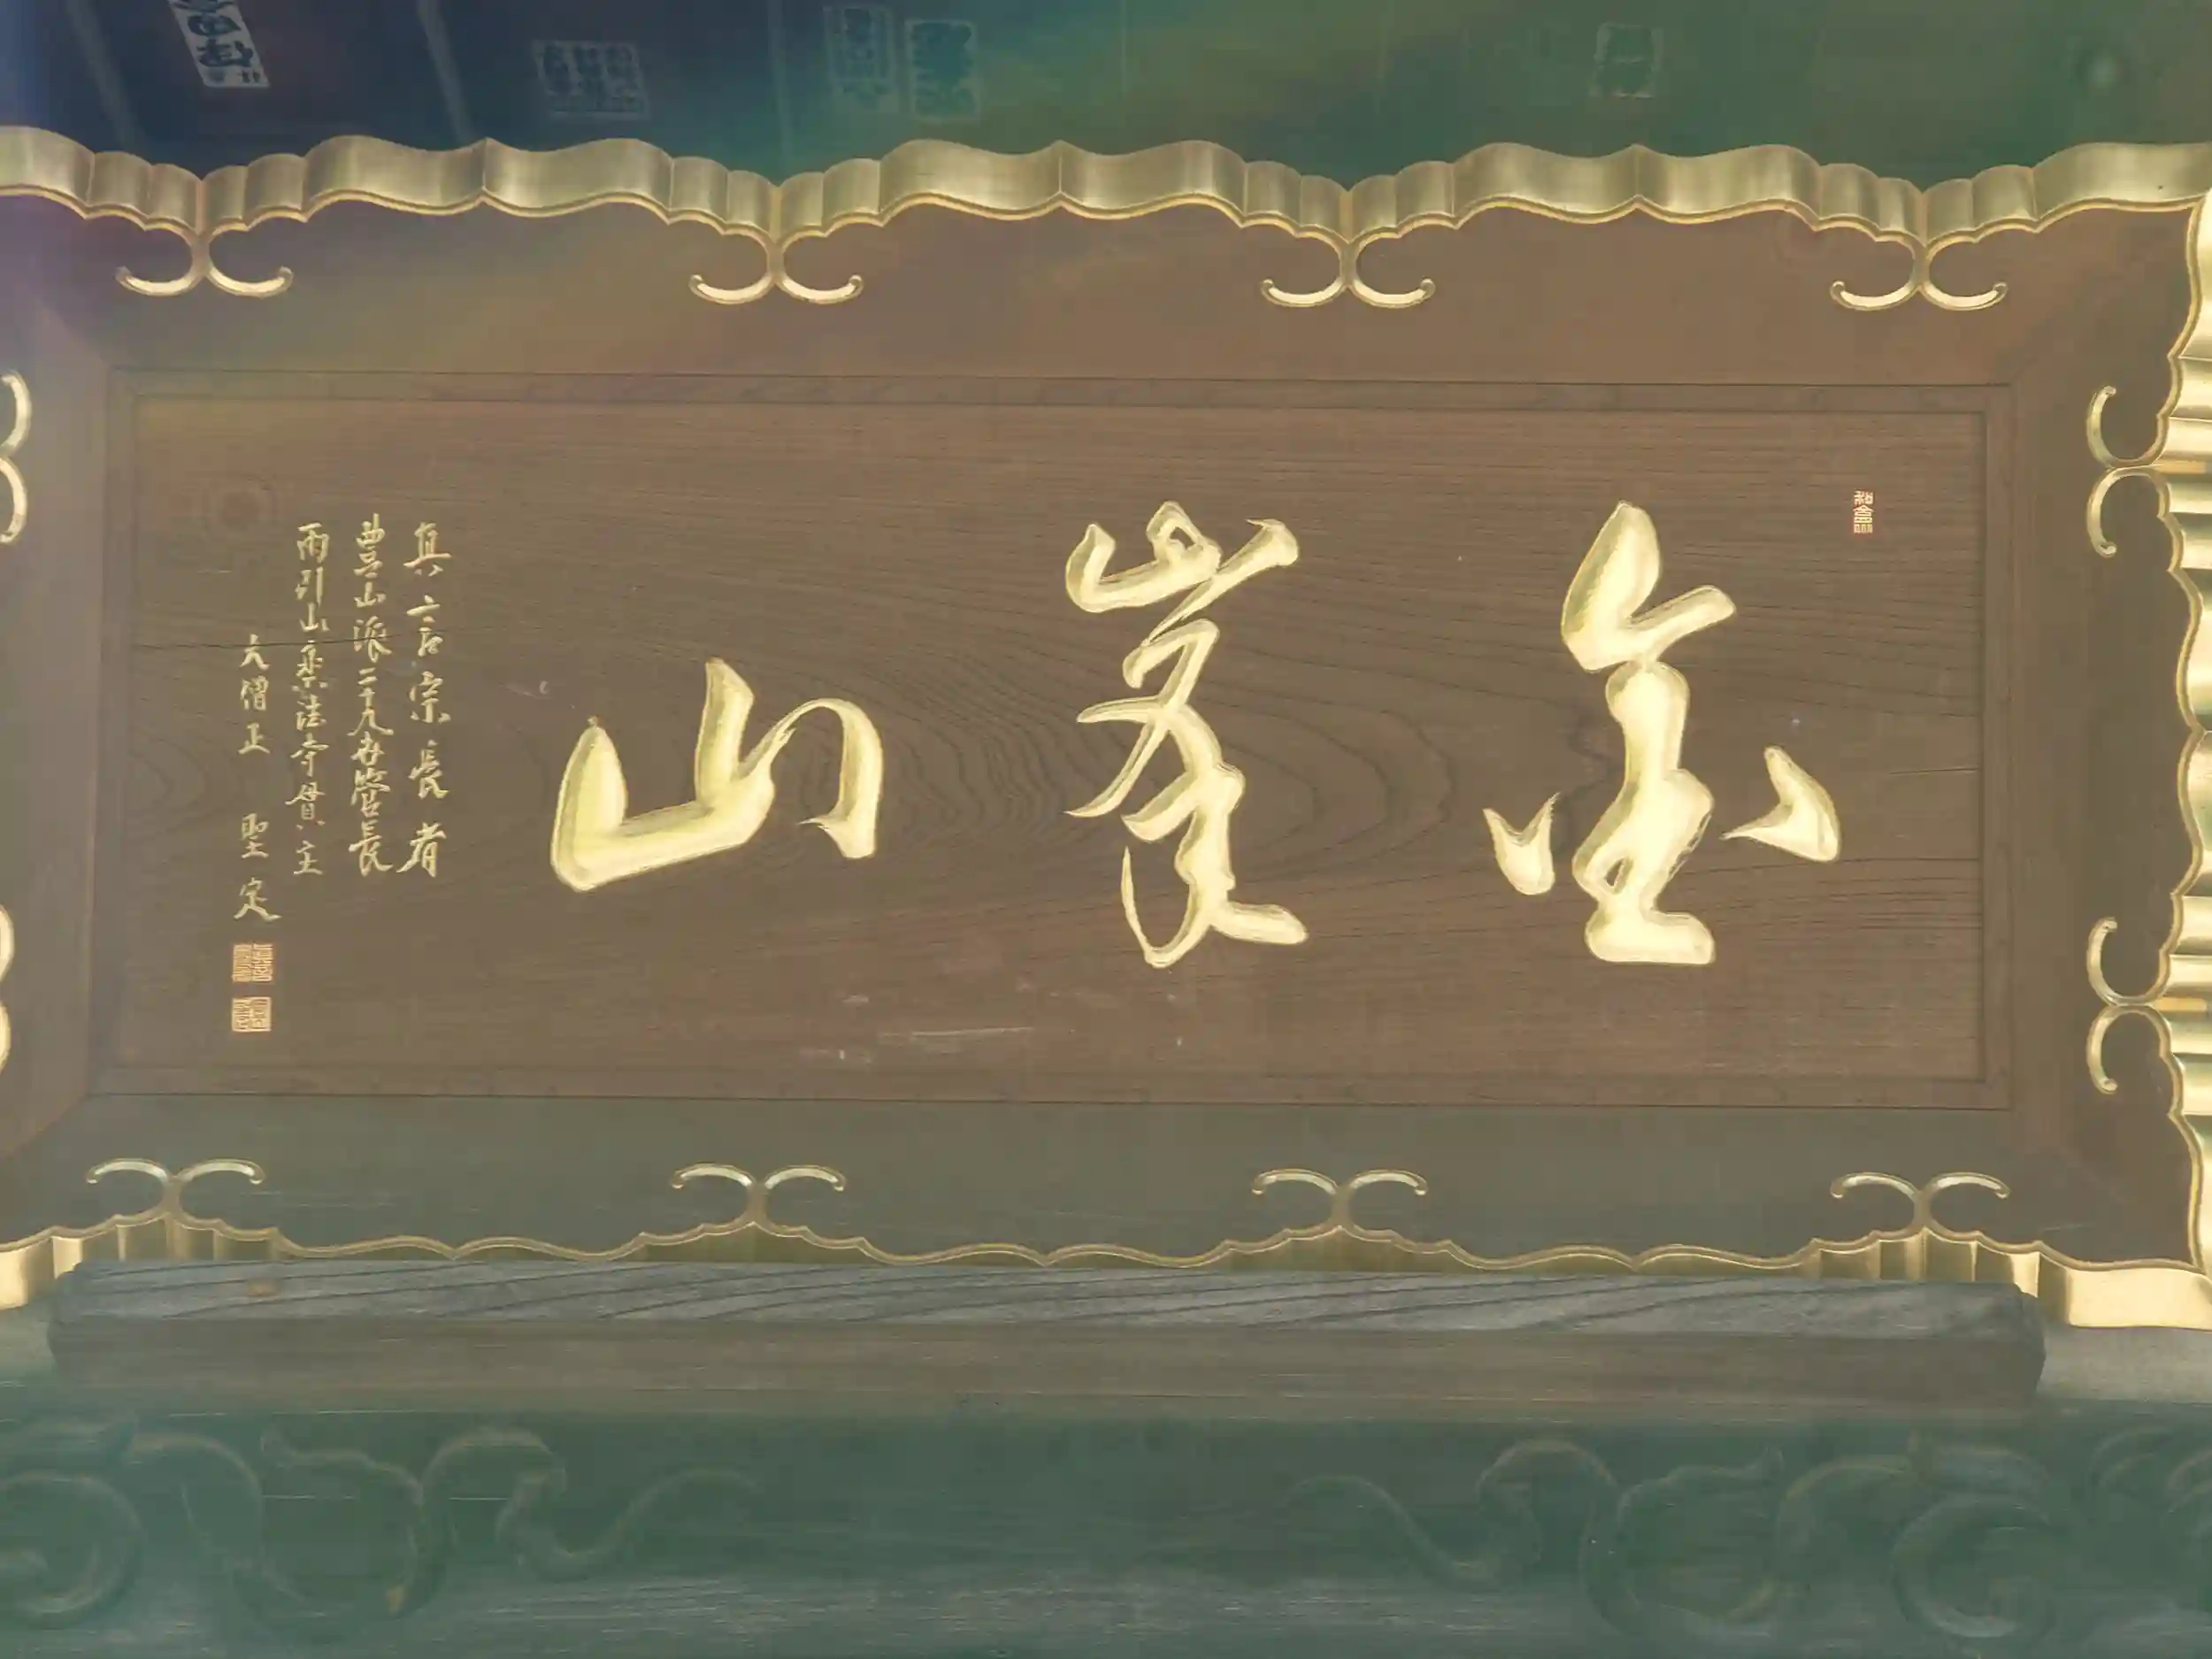 金峯山
真言宗長者
豊山派二十九世管長
雨引山楽法寺貫主
大僧正 聖定